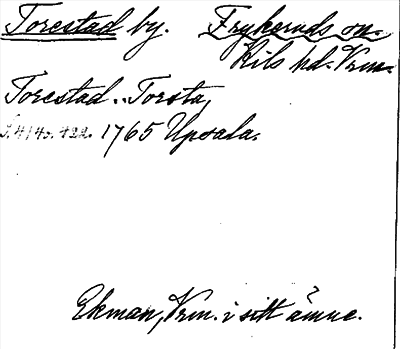 Torestad by. Frykeruds sn.
Kils hd. Vrm.
Torestad.. Torsta,
S. 414o. 422. 1765 Upsala.
Ekman, Vrm. i sitt ämne.